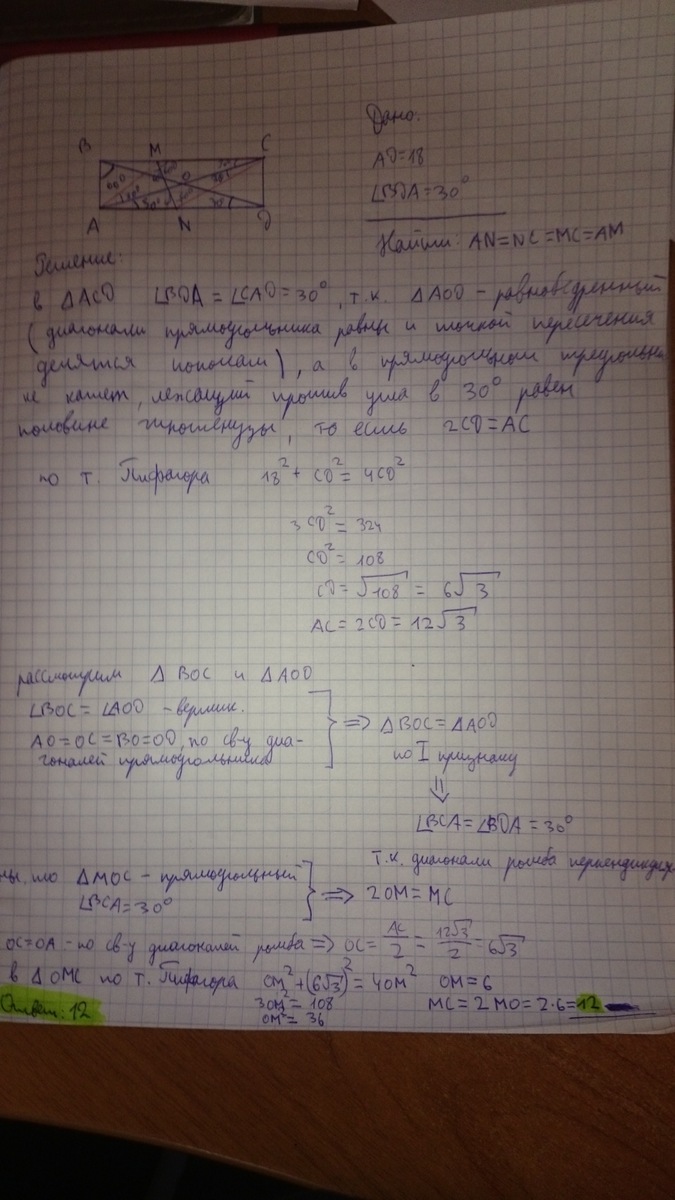 Дано:
AD=18
∠BDA=30°
Найти: AN=NC=MC=AM
B M C
60° 60° 30° 30° O
30° 30°
A N D
Решение:
в ΔACD ∠BDA = ∠CAD = 30°, т.к. ΔAOD - равнобедренный
(диагонали прямоугольника равны и точкой пересечения
делятся пополам), а в прямоугольном треугольни
ке катет, лежащий против угла в 30° равен
половине гипотенузы, то есть 2CD=AC
по т. Пифагора 18² + CD² = 4CD²
3CD² = 324
CD² = 108
CD = √108 = 6√3
AC = 2CD = 12√3
рассмотрим Δ BOC и ΔAOD
∠BOC = ∠AOD - вертик.
AO=OC=BO=OD, по св-у диа-
гоналей прямоугольника
⇒ ΔBOC = ΔAOD
по I признаку
⇓
∠BCA = ∠BDA = 30°
т.к. диагонали ромба перпендикуляр
ны, то ΔMOC - прямоугольный
∠BCA = 30°
⇒ 2OM = MC
OC=OA - по св-у диагоналей ромба ⇒ OC = AC/2 = 12√3/2 = 6√3
в ΔOMC по т. Пифагора OM² + (6√3)² = 4OM² OM = 6
3OM² = 108 MC = 2MO = 2·6 = 12
OM² = 36
Ответ: 12